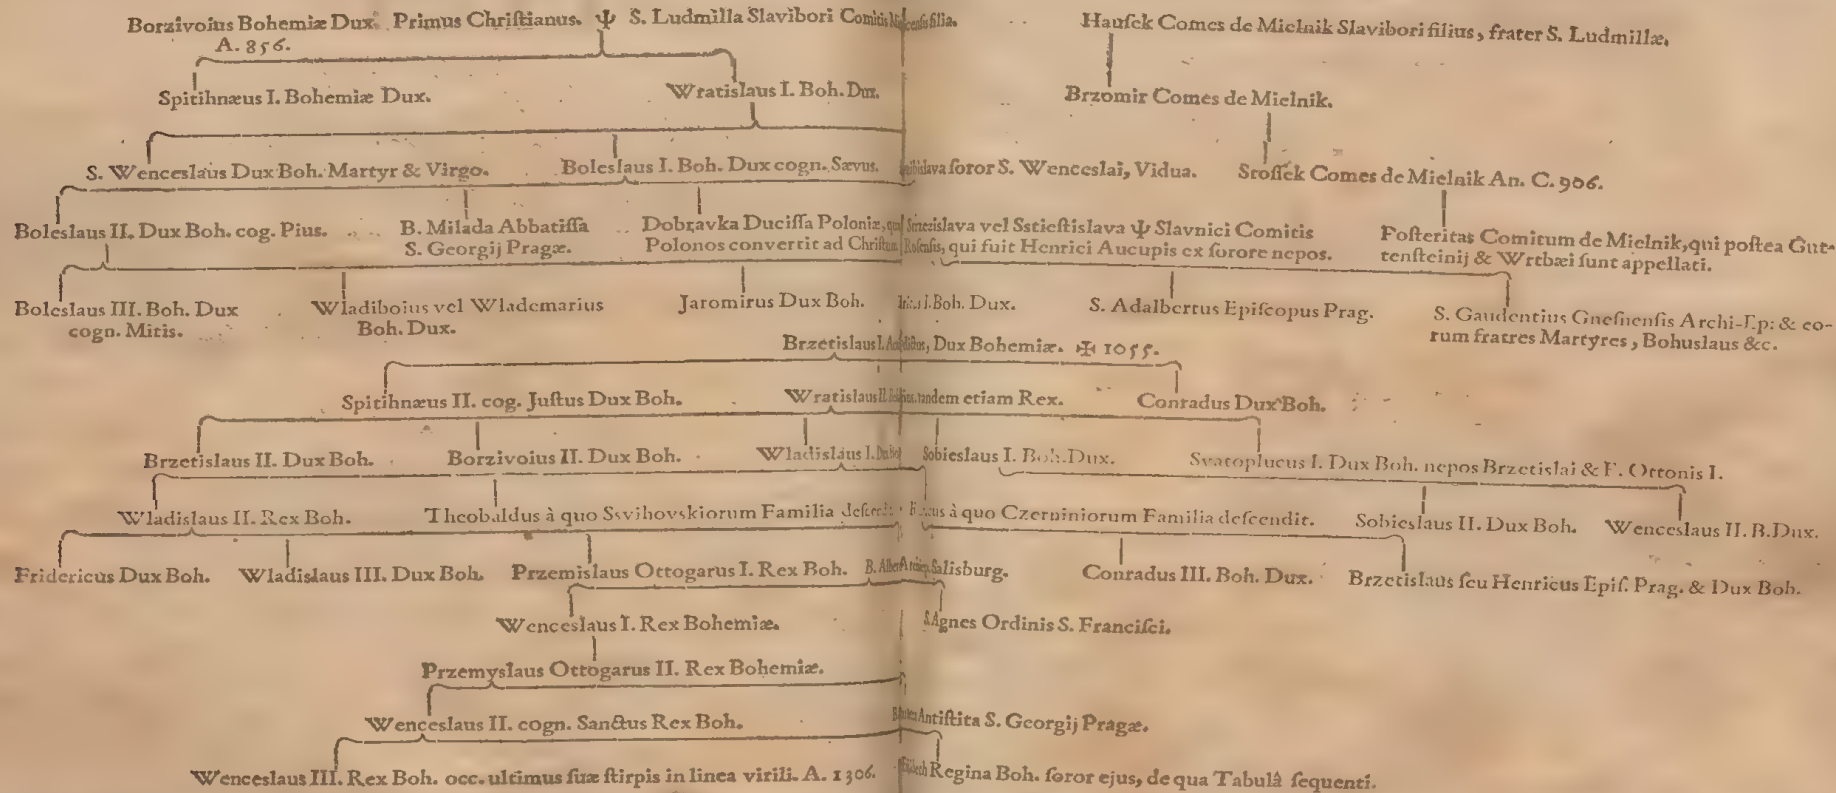 Borzivoius Bohemiæ Dux. Primus Chriſtianus. Ψ S. Ludmilla Slavibori Comitis filia.
A. 856.
Hauſek Comes de Mielnik Slavibori filius, frater S. Ludmillæ.
Spitihnæus I. Bohemiæ Dux.
Wratislaus I. Boh. Dux.
Brzomir Comes de Mielnik.
S. Wenceslaus Dux Boh. Martyr & Virgo.
Boleslaus I. Boh. Dux cogn. Sævus.
ſoror S. Wenceslai, Vidua.
Stoſſek Comes de Mielnik An. C. 906.
Boleslaus II. Dux Boh. cog. Pius.
B. Milada Abbatiſſa
S. Georgij Pragæ.
Dobravka Duciſſa Poloniæ, quæ
Polonos convertit ad Chriſtum
vel Sstieſtislava Ψ Slavnici Comitis
qui fuit Henrici Aucupis ex ſorore nepos.
Poſteritas Comitum de Mielnik, qui poſtea Gut-
tenſteinij & Wrtbæi ſunt appellati.
Boleslaus III. Boh. Dux
cogn. Mitis.
Wladiboius vel Wlademarius
Boh. Dux.
Jaromirus Dux Boh.
I. Boh. Dux.
S. Adalbertus Epiſcopus Prag.
S. Gaudentius Gneſnenſis Archi-Ep: & eo-
rum fratres Martyres, Bohuslaus &c.
Brzetislaus I. dictus, Dux Bohemiæ. ✠ 1055.
Spitihnæus II. cog. Juſtus Dux Boh.
Wratislaus II. tandem etiam Rex.
Conradus Dux Boh.
Brzetislaus II. Dux Boh.
Borzivoius II. Dux Boh.
Wladislaus I. Dux Boh.
Sobieslaus I. Boh. Dux.
Svatoplucus I. Dux Boh. nepos Brzetislai & F. Ottonis I.
Wladislaus II. Rex Boh.
Theobaldus à quo Ssvihovskiorum Familia deſcendit.
à quo Czerniniorum Familia deſcendit.
Sobieslaus II. Dux Boh.
Wenceslaus II. B. Dux.
Fridericus Dux Boh.
Wladislaus III. Dux Boh.
Przemislaus Ottogarus I. Rex Boh.
B. Salisburg.
Conradus III. Boh. Dux.
Brzetislaus ſeu Henricus Epiſ. Prag. & Dux Boh.
Wenceslaus I. Rex Bohemiæ.
S. Agnes Ordinis S. Franciſci.
Przemyslaus Ottogarus II. Rex Bohemiæ.
Wenceslaus II. cogn. Sanctus Rex Boh.
Antiſtita S. Georgij Pragæ.
Wenceslaus III. Rex Boh. occ. ultimus ſuæ ſtirpis in linea virili. A. 1306.
Regina Boh. ſoror ejus, de qua Tabulâ ſequenti.